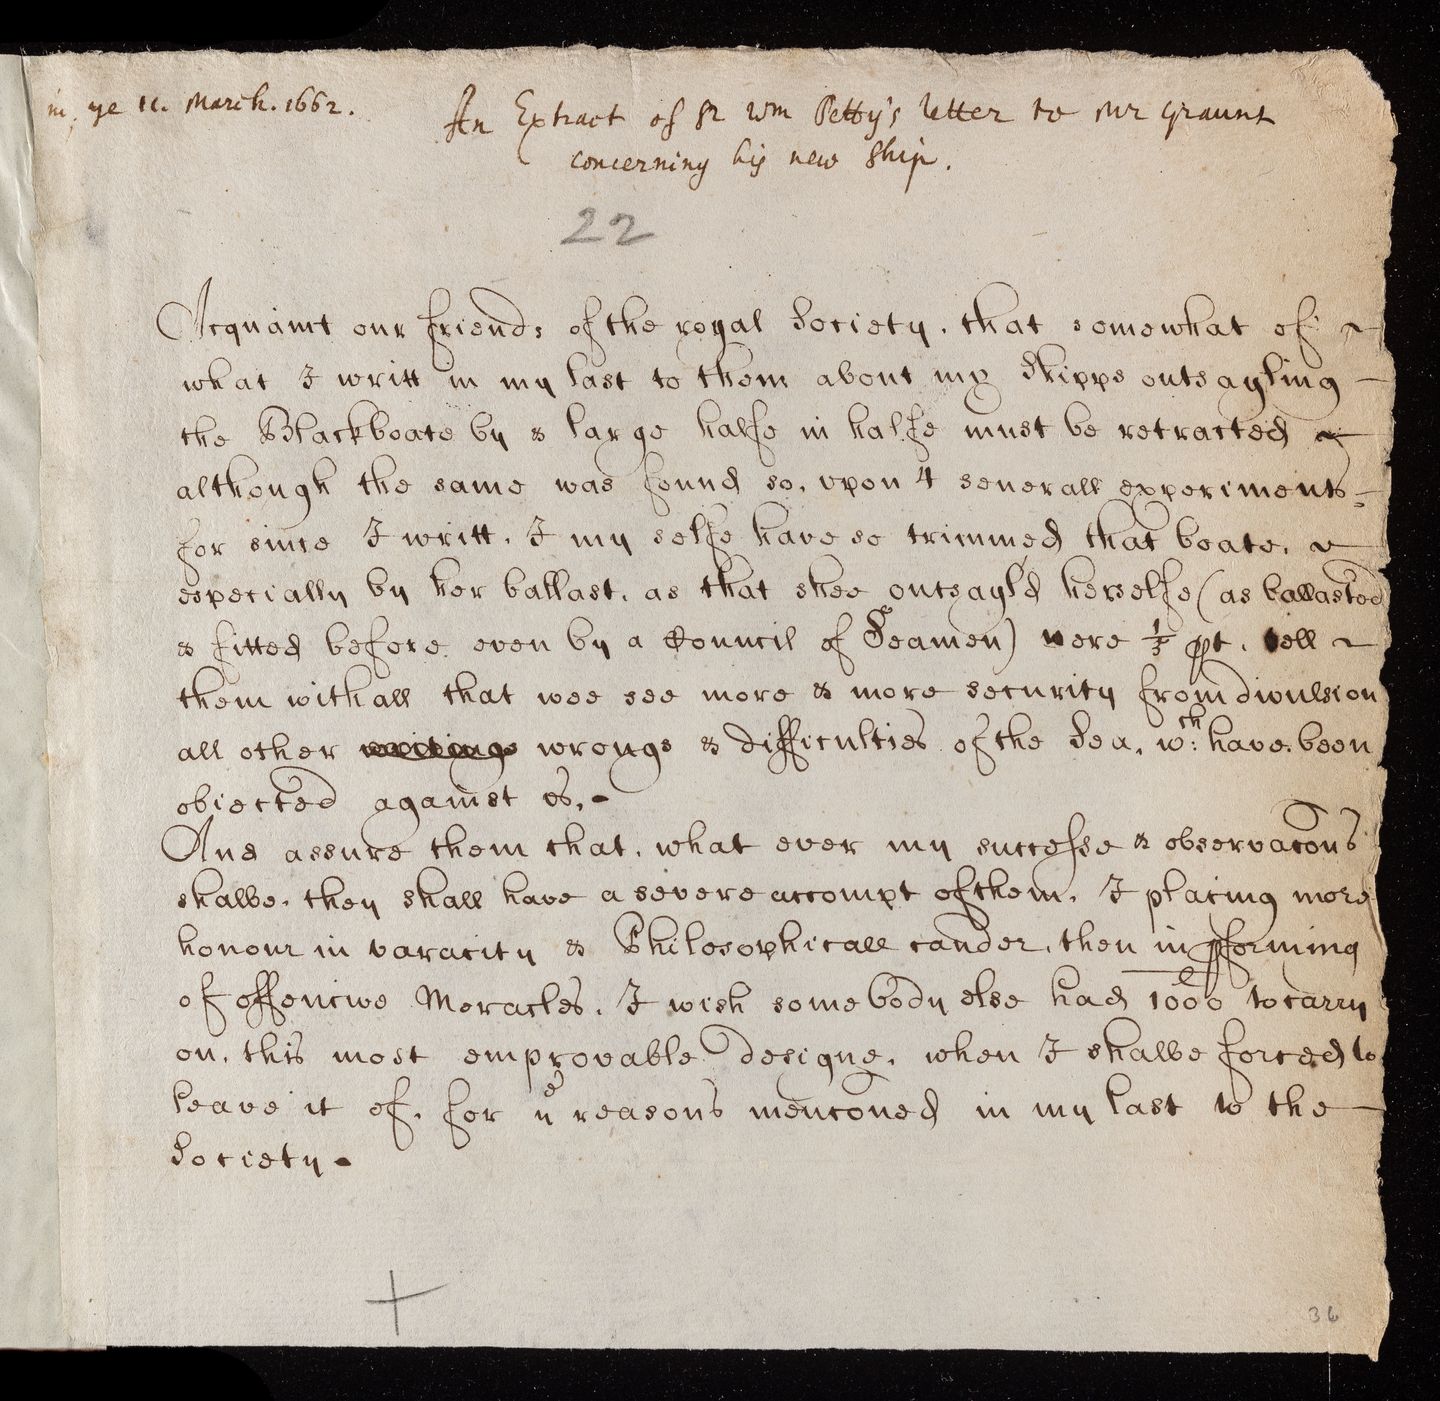 in, ye 11. March. 1662.
An Extract of Sr Wm Petty's letter to Mr Graunt
concerning his new Ship.
22
Acquaint our friends of the royal Society, that somewhat of
what I writt in my last to them about my Shipps outsayling
the Blackboate by a large halfe in halfe must be retracted
although the same was found so, vpon 4 severall experiments
for since I writt, I my selfe have so trimmed that boate,
especially by her ballast, as that shee outsayld herselfe (as ballasted
& fitted before even by a Councill of Seamen) nere 1/3 pt. tell
them withall that wee see more & more security from divulsion
all other wrongs & difficulties of the Sea, wch: have been
obiected against us.
And assure them that, what ever my successe & observacons
shalbe, they shall have a severe accompt of them, I placing more
honour in varacity & Philosophicall candor, then in pforming
of offencive Meracles. I wish some body else had 1000l to carry
on, this most emprovable designe, when I shalbe forced to
leave it of, for ye reasons menconed in my last to the
Society.
36